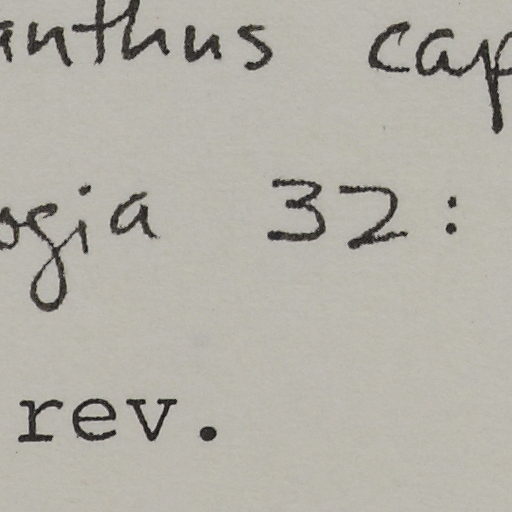 anthus cap
ogia 32:
rev.